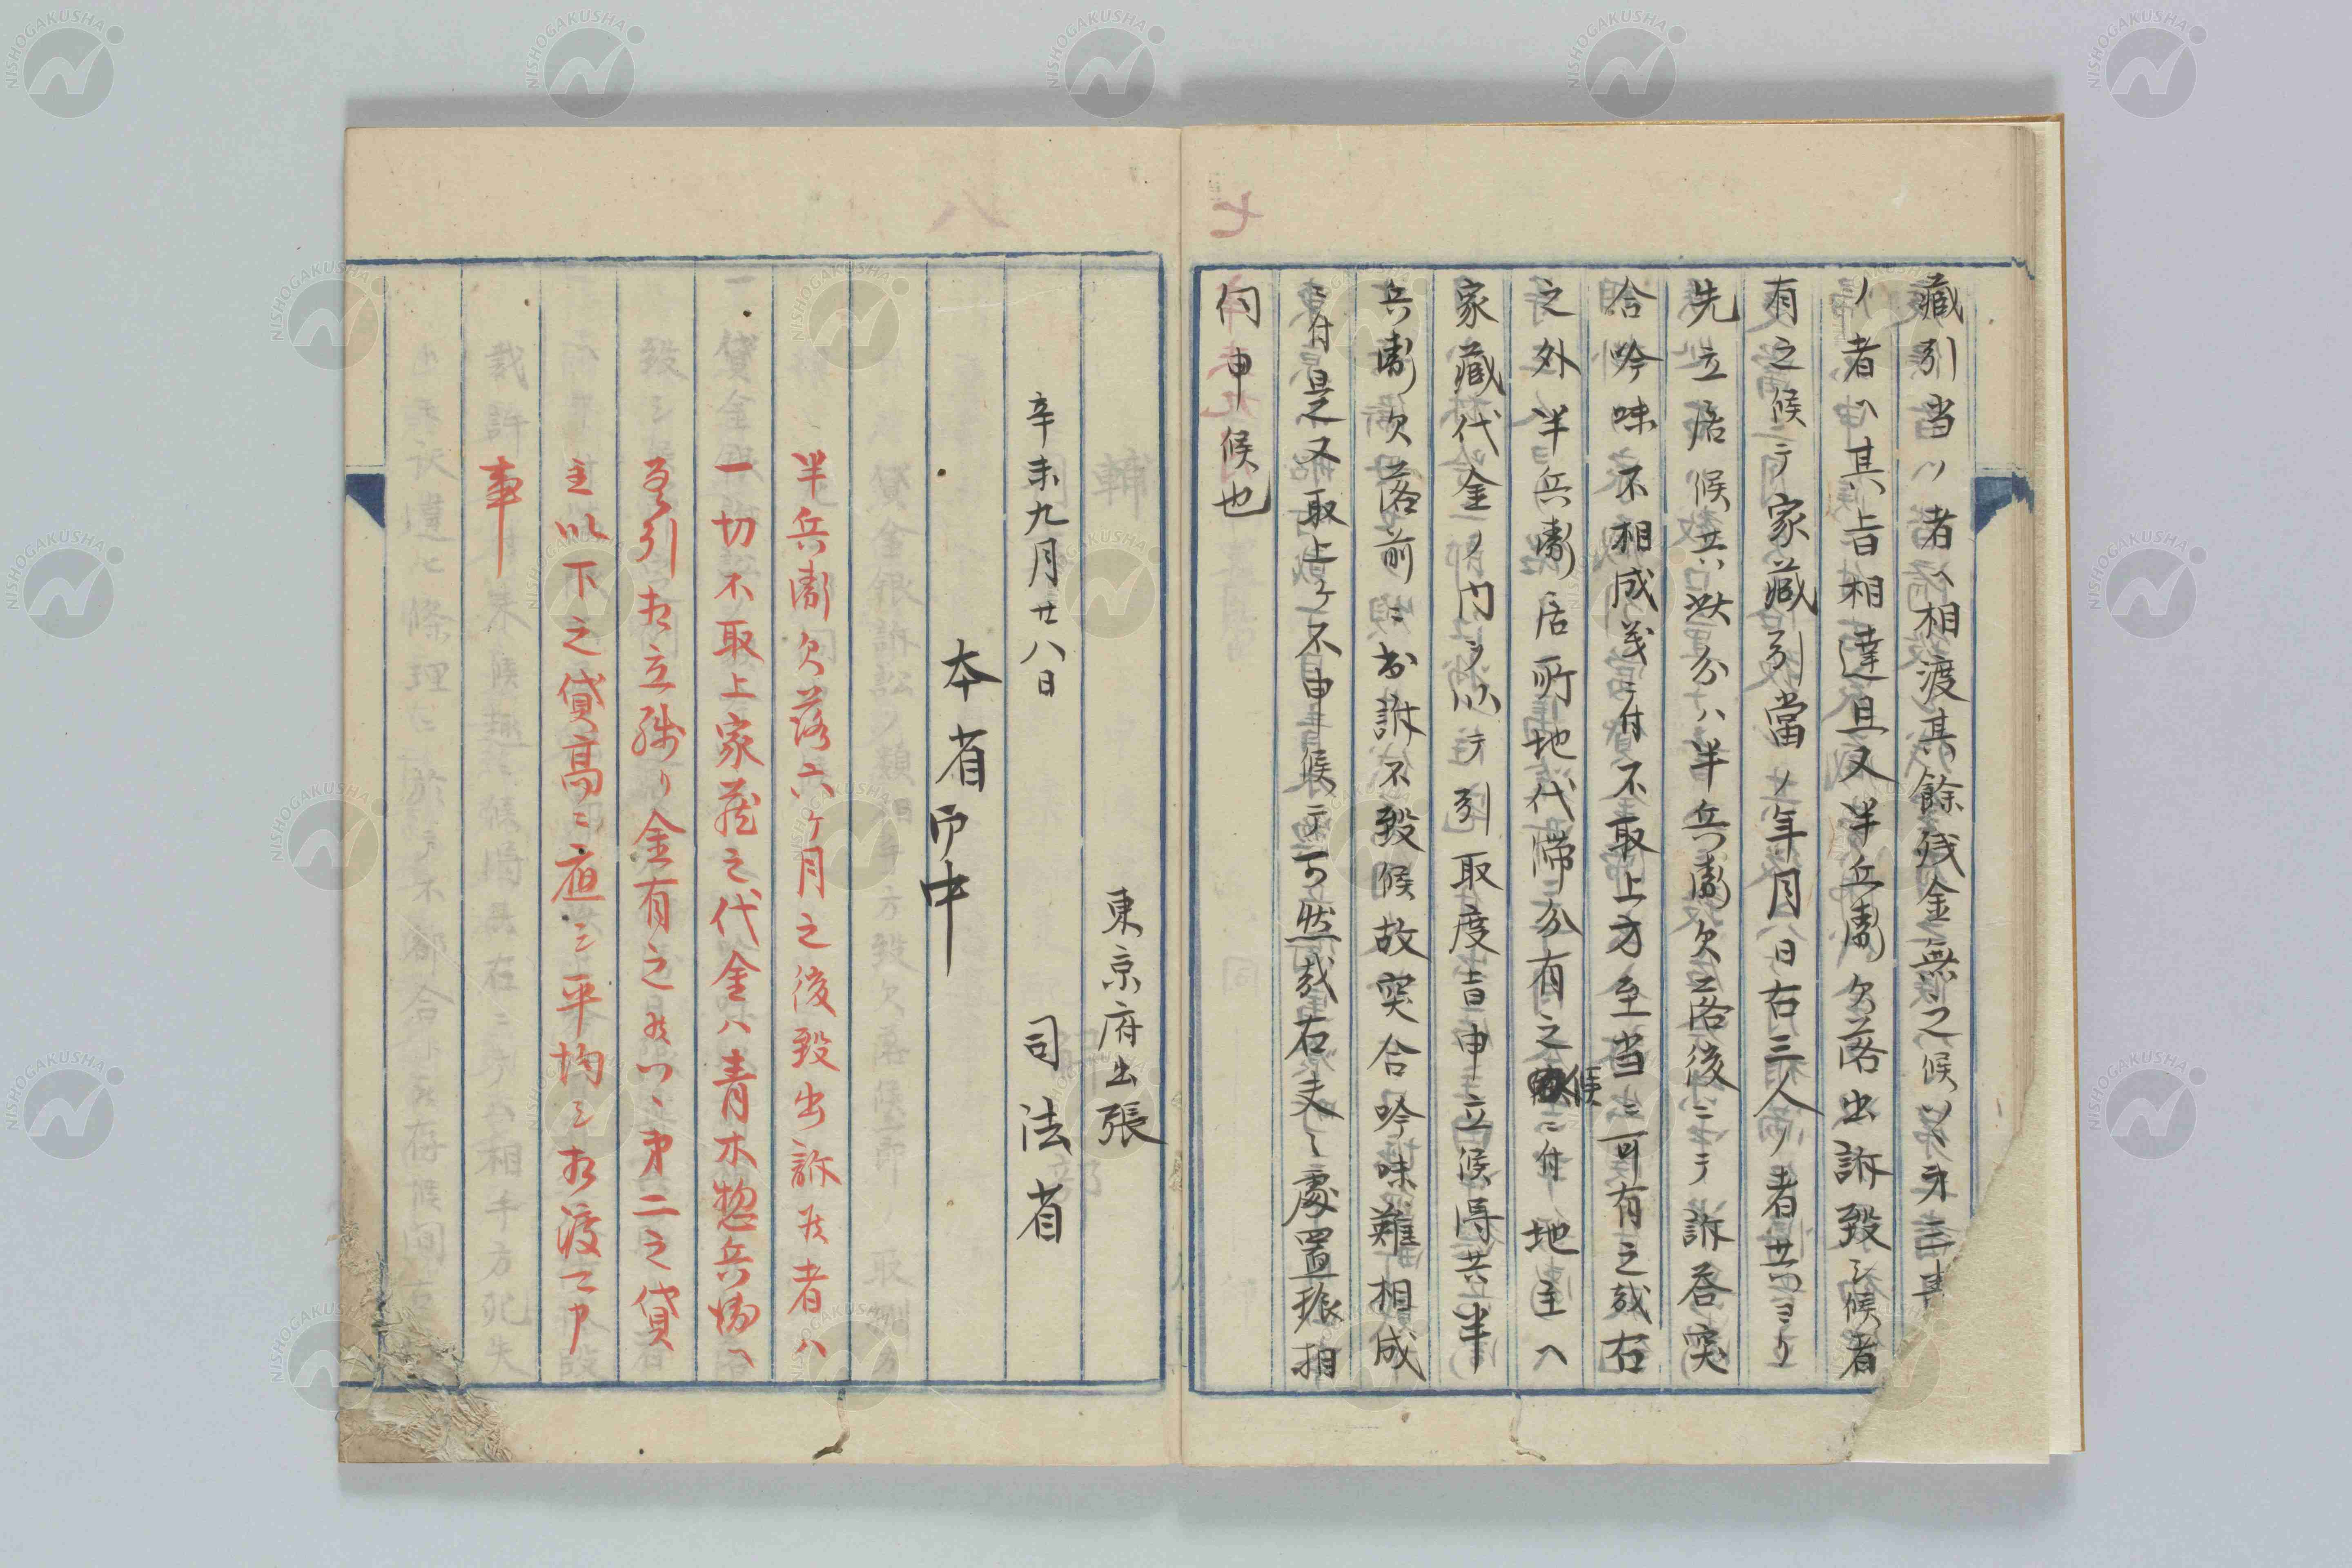 藏引当ノ者ヘ相渡其餘残金無之候ハヽ才三書
ノ者ヘ其旨相達且又半兵衛欠落出訴致シ候者
有之候テ家藏引當ノ年月日右三人ノ者共ヨリ
先立居候共此分ハ半兵衛欠落後ニテ訴吞突
合吟味不相成義ニ付不取上方至当ニ可有之哉右
之外半兵衛居町地代滞分有之候ニ付地主ヘ
家藏代金ノ内ヲ以テ引取度旨申立候得共半
兵衛欠落前ニ出訴不致候故突合吟味難相成
ニ付是又取上ケ不申候テ可然哉右夫〻處置振相
伺申候也
東京府出張
司法省
辛未九月廿八日
本省御中
半兵衛欠落六ヶ月之後致出訴候者ハ
一切不取上家藏之代金ハ青木惣兵衛ヘ
為引相立残リ金有之候ハヽ才二之貸
主以下之貸高ニ應シ平均シ相渡可申
事
七
八
NISHOGAKUSHA